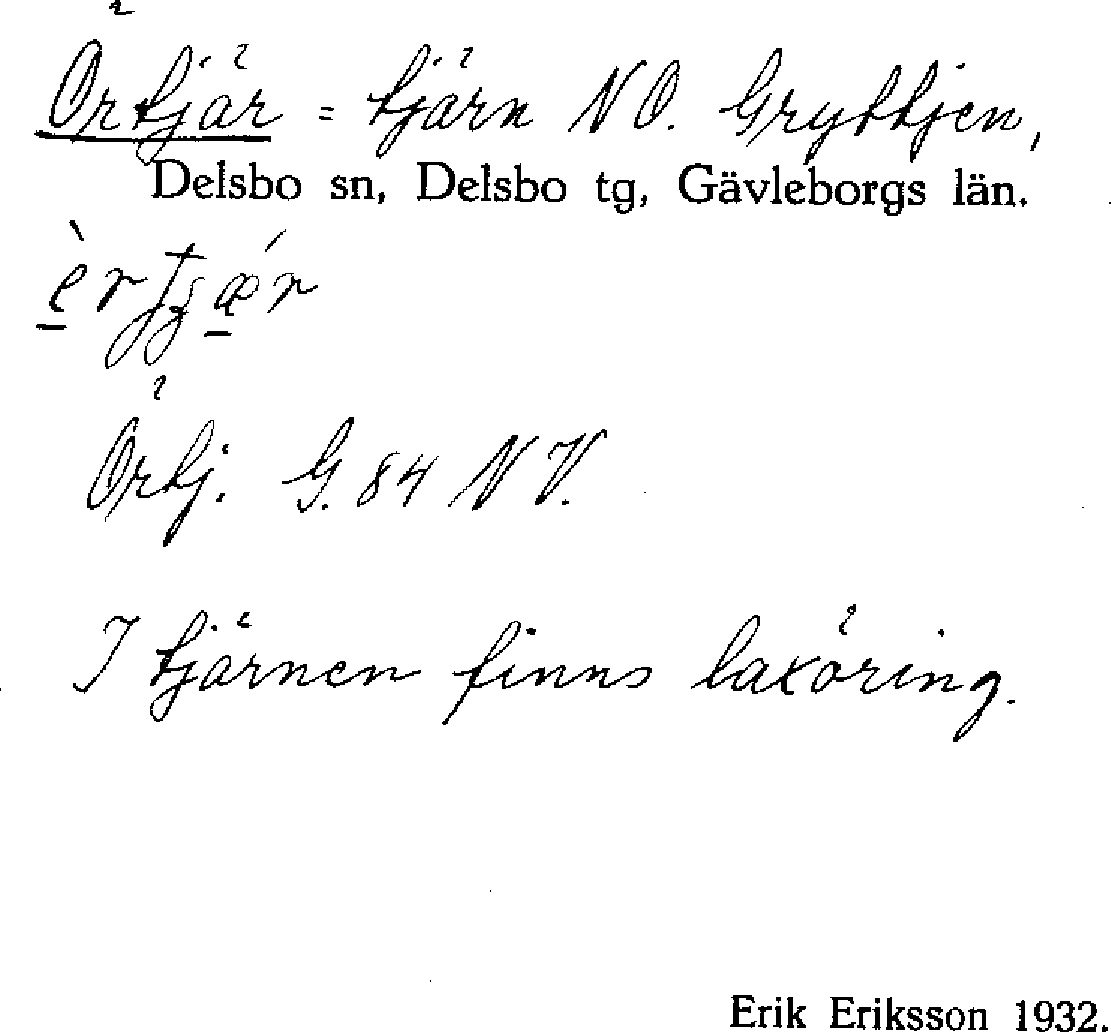 Örtjär = tjärn N O. Gryttjen,
Delsbo sn, Delsbo tg, Gävleborgs län.
Örtj. G. 84 N V.
I tjärnen finns laxöring.
Erik Eriksson 1932.